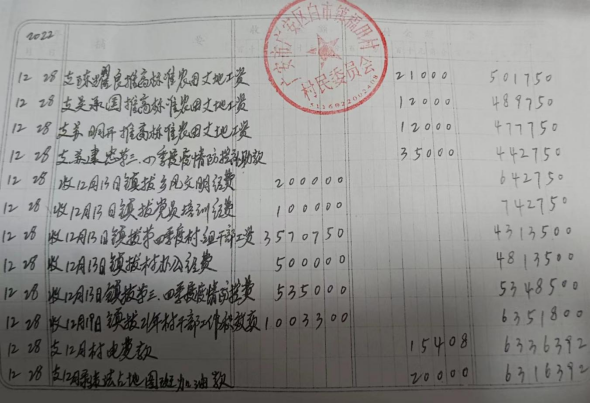 2022
广安市广安区白市镇 村
村民委员会
12 28 支 耀良推高标准农田丈地工资 21000 501750
12 28 支 国推高标准农田丈地工资 12000 489750
12 28 支 明 推高标准农田丈地工资 12000 477750
12 28 支 建忠三.四季度疫情防控补助款 35000 442750
12 28 收12月13日镇拨乡风文明经费 200000 642750
12 28 收12月13日镇拨党员培训经费 100000 742750
12 28 收12月13日镇拨第四季度村组干部工资 3570750 4313500
12 28 收12月13日镇拨村办公经费 500000 4813500
12 28 收12月13日镇拨第三.四季度疫情防控费 535000 5348500
12 28 收12月19日镇拨21年村干部工作 效款 1003300 6351800
12 28 支12月村电费款 15408 6336392
12 28 支12月 占地 加油款 20000 6316392